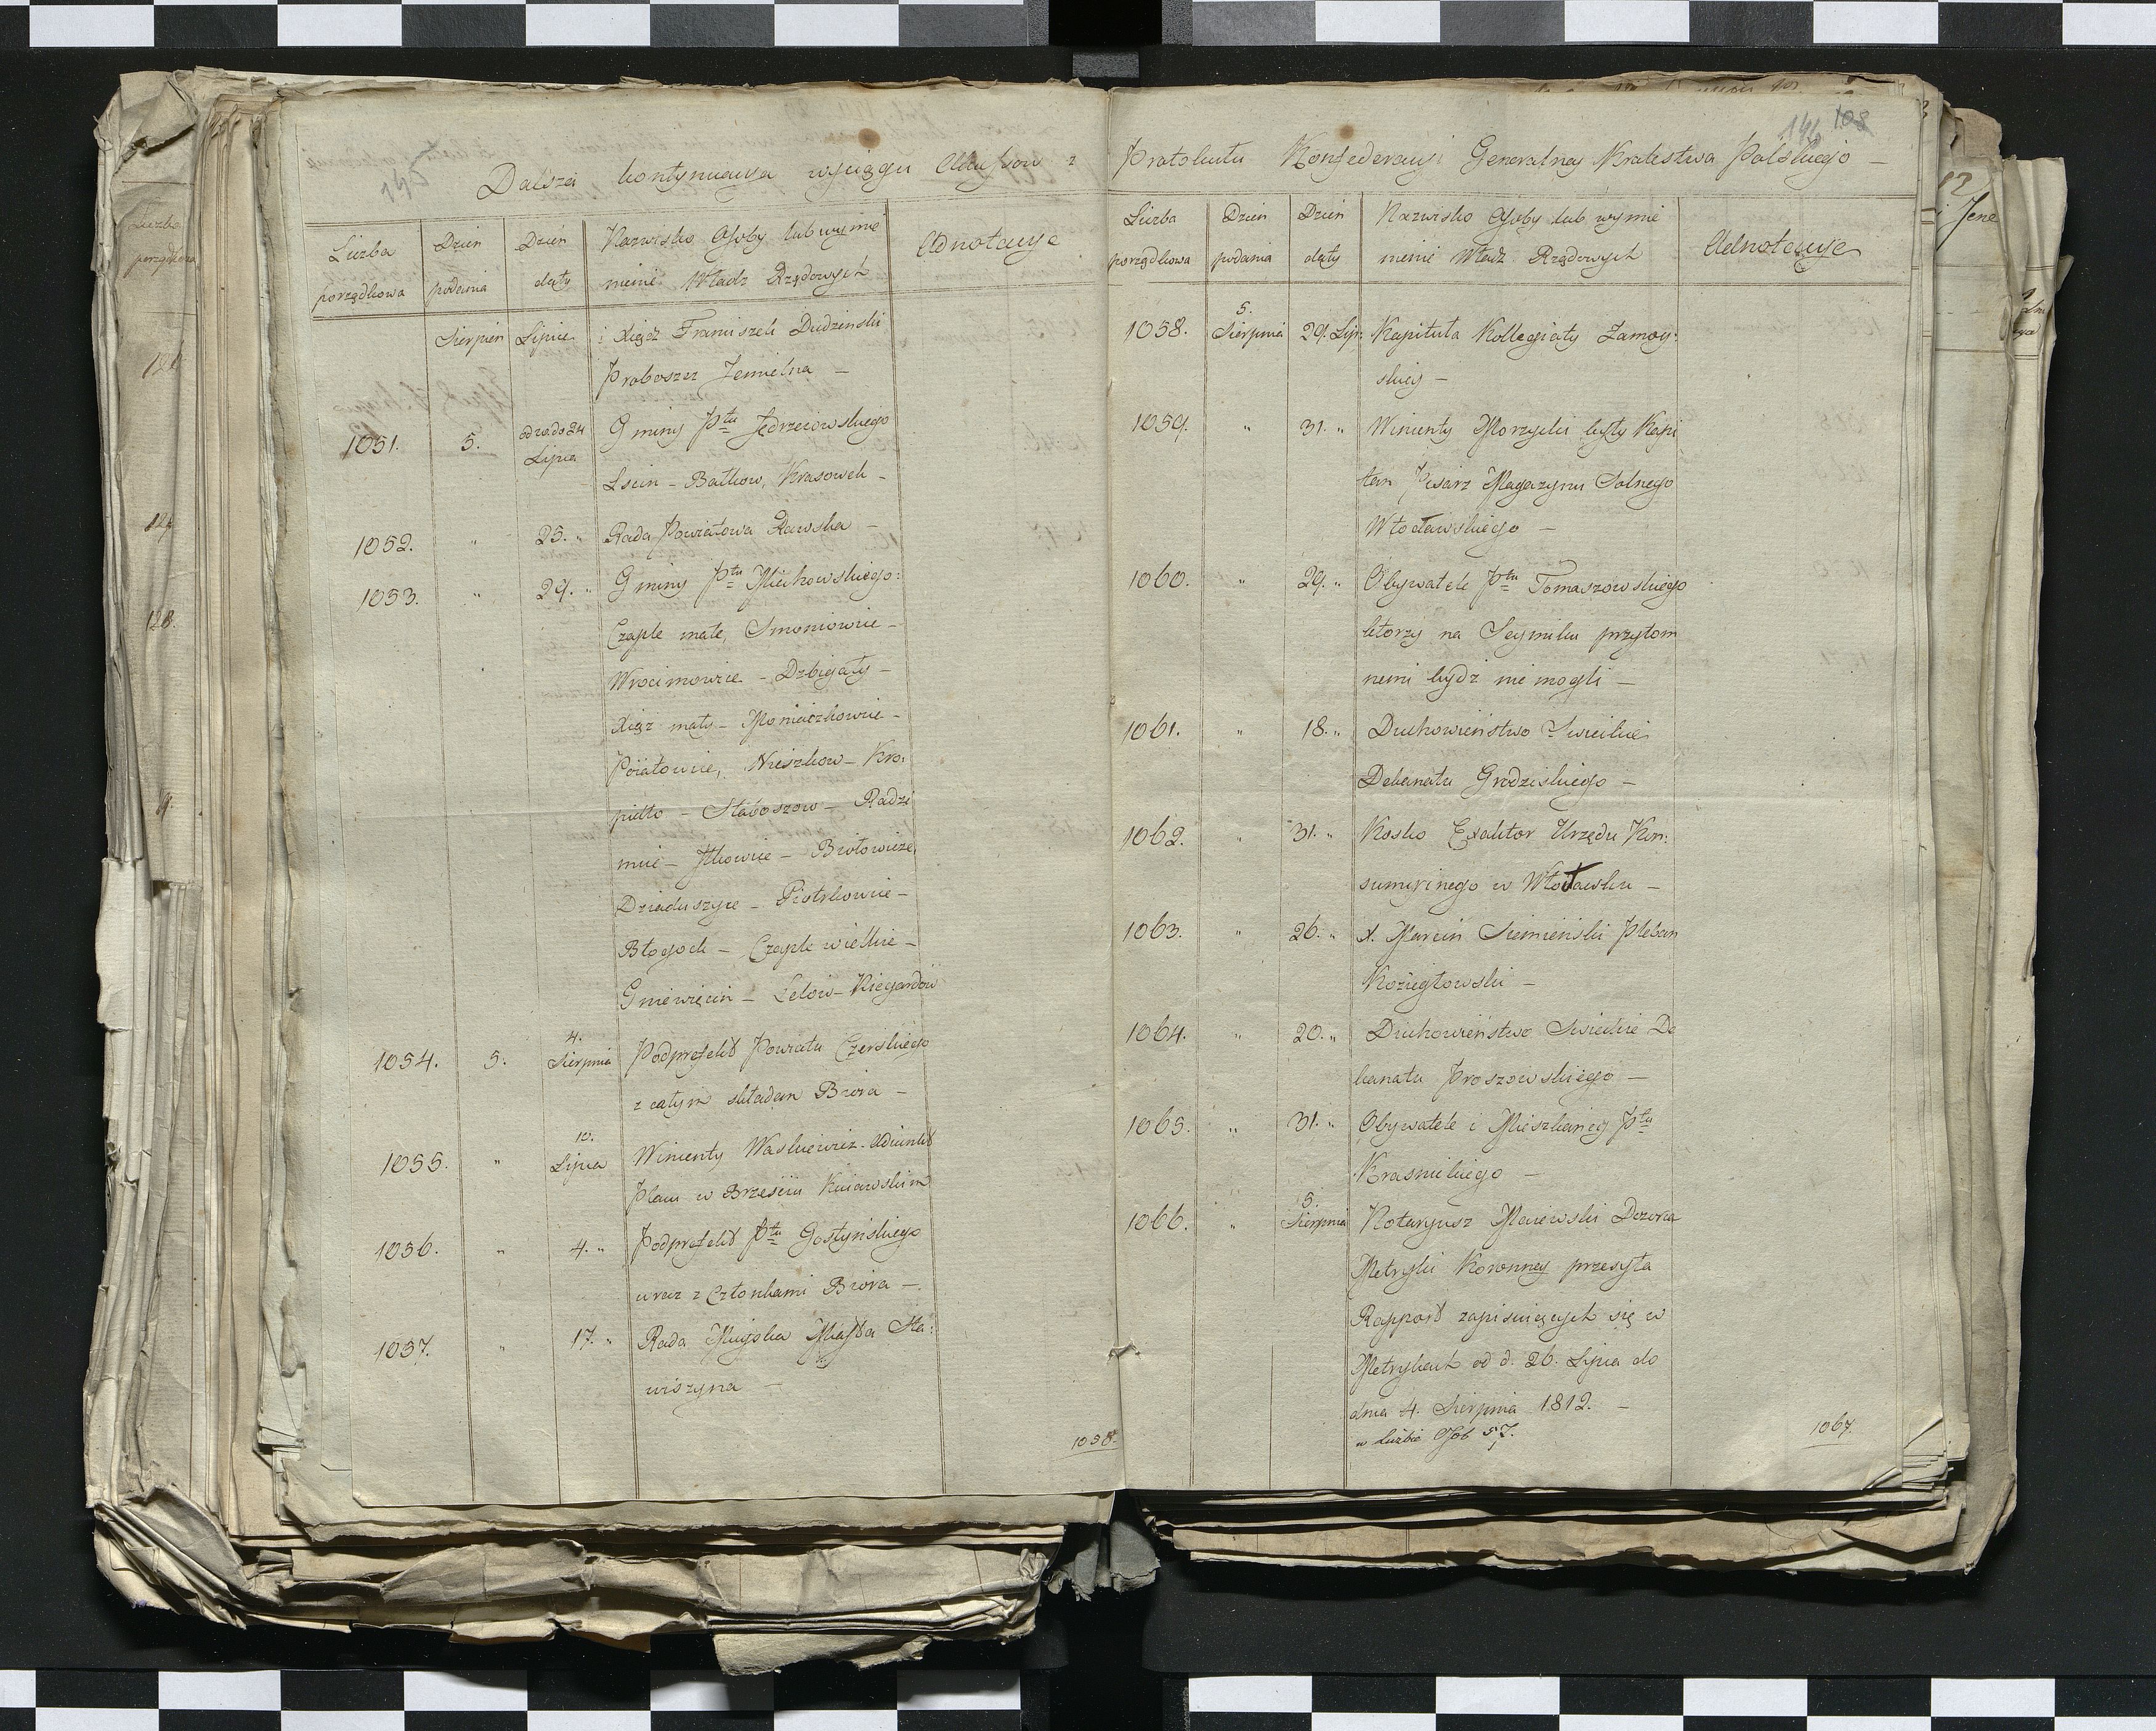 Dalsza kontynuacya wyciągu Akcessow z
Liczba porządkowa
Dzień podania
Dzień daty
Nazwisko Osoby lub wymie
nienie Władz Rządowych
Adnotacye
Sierpień Lipiec i Xiądz Franciszek Dudzinski
Proboszcz Jemielna –
1051. 5. Lipca Gminy Ptu Jędrzeiowskiego
Łscin – Bałkow, Krasowek –
1052. " 25. " Rada Powiatowa Rawska –
1053. " 29. " Gminy Ptu Miechowskiego:
Czaple małe, Smoniowice –
Wrocimowice – Dzbigały –
Xiąz mały – Moniaczkowice –
Poiałowice, Nieszkow – Kro:
pidło – Słaboszow – Radzi
mice – Ilkowice – Bwłowice,
Dziaduszyce – Piotrkowice –
Błogock – Czaple wielkie –
Gniewięcin – Lelow – Niegardow
1054. 5. 4. Sierpnia Podprefekt Powiatu Czerskiego
z całym składem Biora –
1055. " 10. Lipca Wincenty Waskiewicz Adiunkt
Placu w Brzesciu Kuiawskim
1056. " 4. " Podprefekt Ptu Gostyńskiego
wraz z Członkami Biora –
1057. " 17. " Rada Mieyska Miasta Sta:
wiszyna –
1058.
108
146
Protokułu Konfederacyi Generalney Krolestwa Polskiego –
Liczba porządkowa
Dzień podania
Dzień daty
Nazwisko Osoby lub wymie
nienie Władz Rządowych
Adnotacye
1058. 5. Sierpnia 29. Lip: Kapituła Kollegiaty Zamoy:
skiey –
1059. " 31. " Wincenty Morzycki były Kapi
tan Pisarz Magazynu Solnego
Włocławskiego –
1060. " 29. " Obywatele Ptu Tomaszowskiego
ktorzy na Seymiku przytom
nemi bydz nie mogli –
1061. " 18. " Duchowieństwo Swieckie
Dekanatu Grodziskiego –
1062. " 31. " Kosko Exaktor Urzędu Kon:
sumcyinego w Włocławku –
1063. " 26. " X. Marcin Siemieński Pleban
Koziegłowski –
1064. " 20. " Duchowieństwo Swieckie De
kanatu Proszowskiego –
1065. " 31. " Obywatele i Mieszkańcy Ptu
Krasnickiego –
1066. " 5. Sierpnia Notaryusz Maiewski Dozorca
Metryki Koronney przesyła
Rapport zapisuiących się w
Metrykach od d. 26. Lipca do
dnia 4. Sierpnia 1812. –
w liczbie Osob 57.
1067.